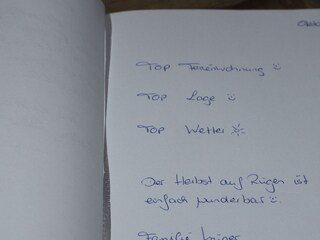 TOP Ferienwohnung
TOP Lage
TOP Wetter
Der Herbst auf Rügen ist
einfach wunderbar
Familie